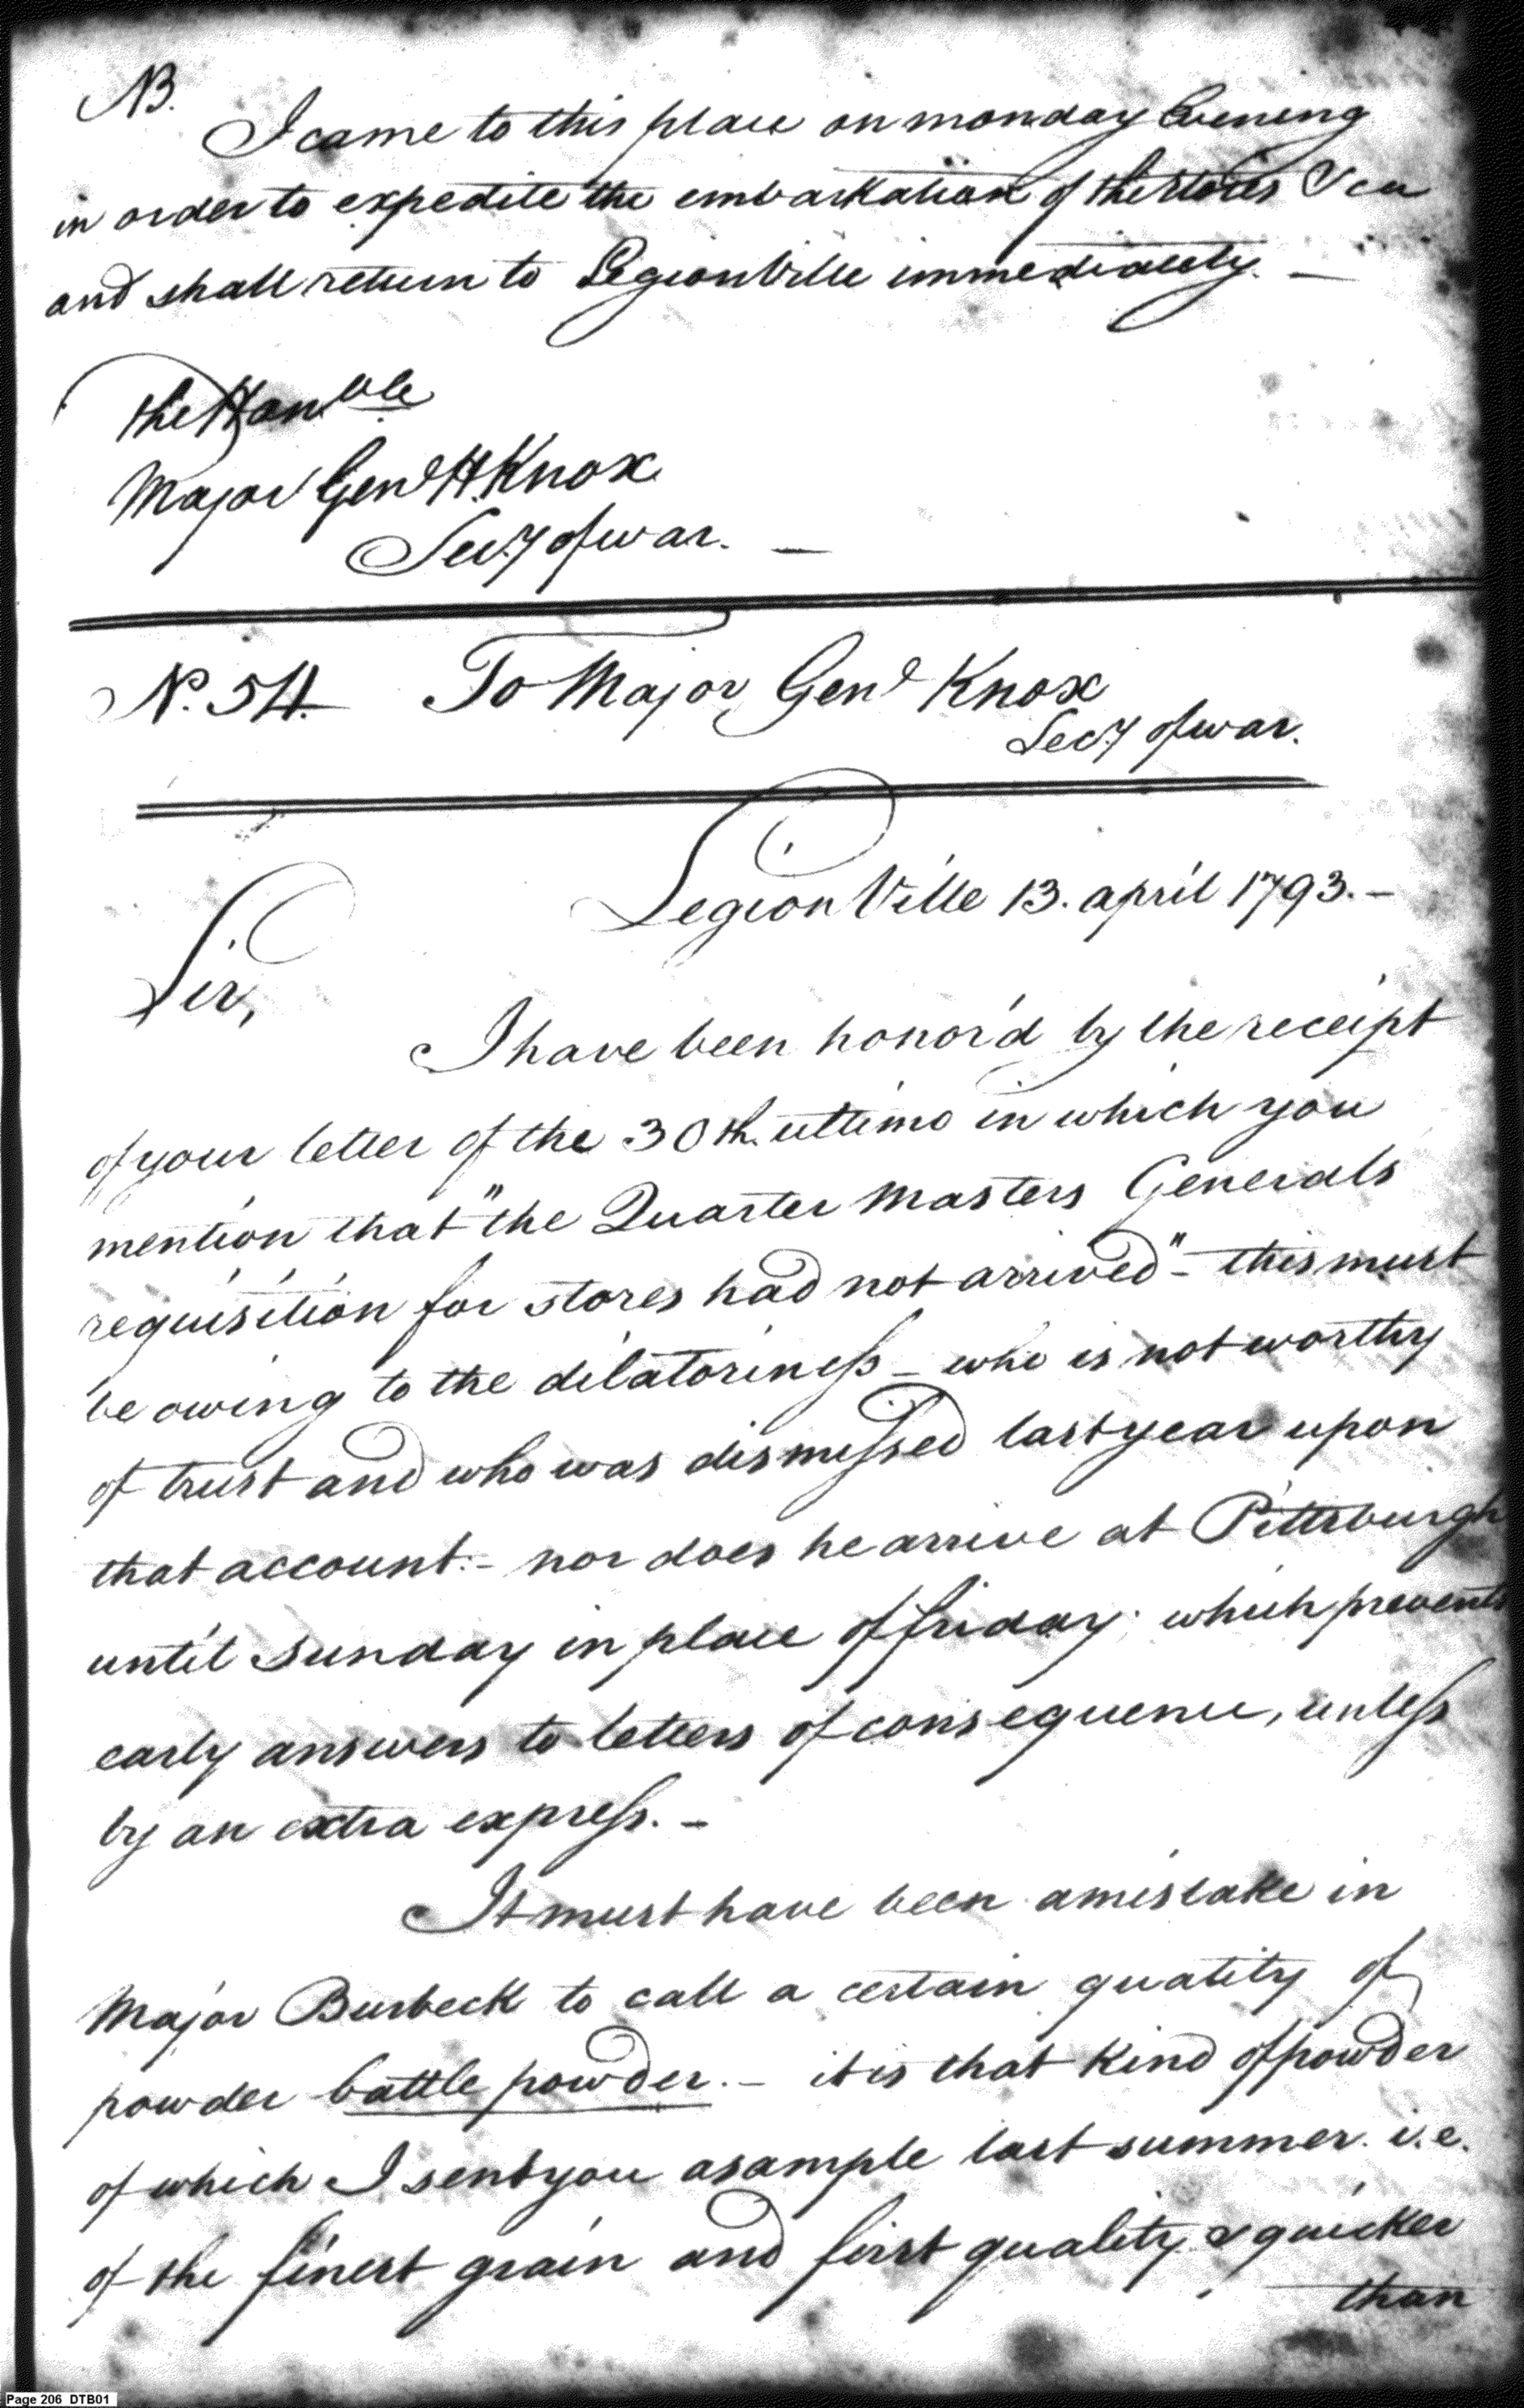 NB.
I came to this place on monday Evening
in order to expedite the embarkation of the stores &ca
and shall return to LegionVille immediately. —
the Honble
Major Genl H. Knox
Secy of war. —
No. 54. To Major Genl Knox
Secy of war.
LegionVille 13. april 1793. –
Sir,
I have been honor'd by the receipt
of your letter of the 30th. ultimo in which you
mention that "the Quarter Masters Generals
requisition for stores had not arrived" – this must
be owing to the dilatoriness – who is not worthy
of trust and who was dismissed last year upon
that account: – nor does he arrive at Pittsburgh
until sunday in place of friday; which prevents
early answers to letters of consequence, unless
by an extra express. –
It must have been a mistake in
Major Burbeck to call a certain quality of
powder battle powder. – it is that kind of powder
of which I sent you a sample last summer. i.e.
of the finest grain and first quality & quicker
than
Page 206 DTB01